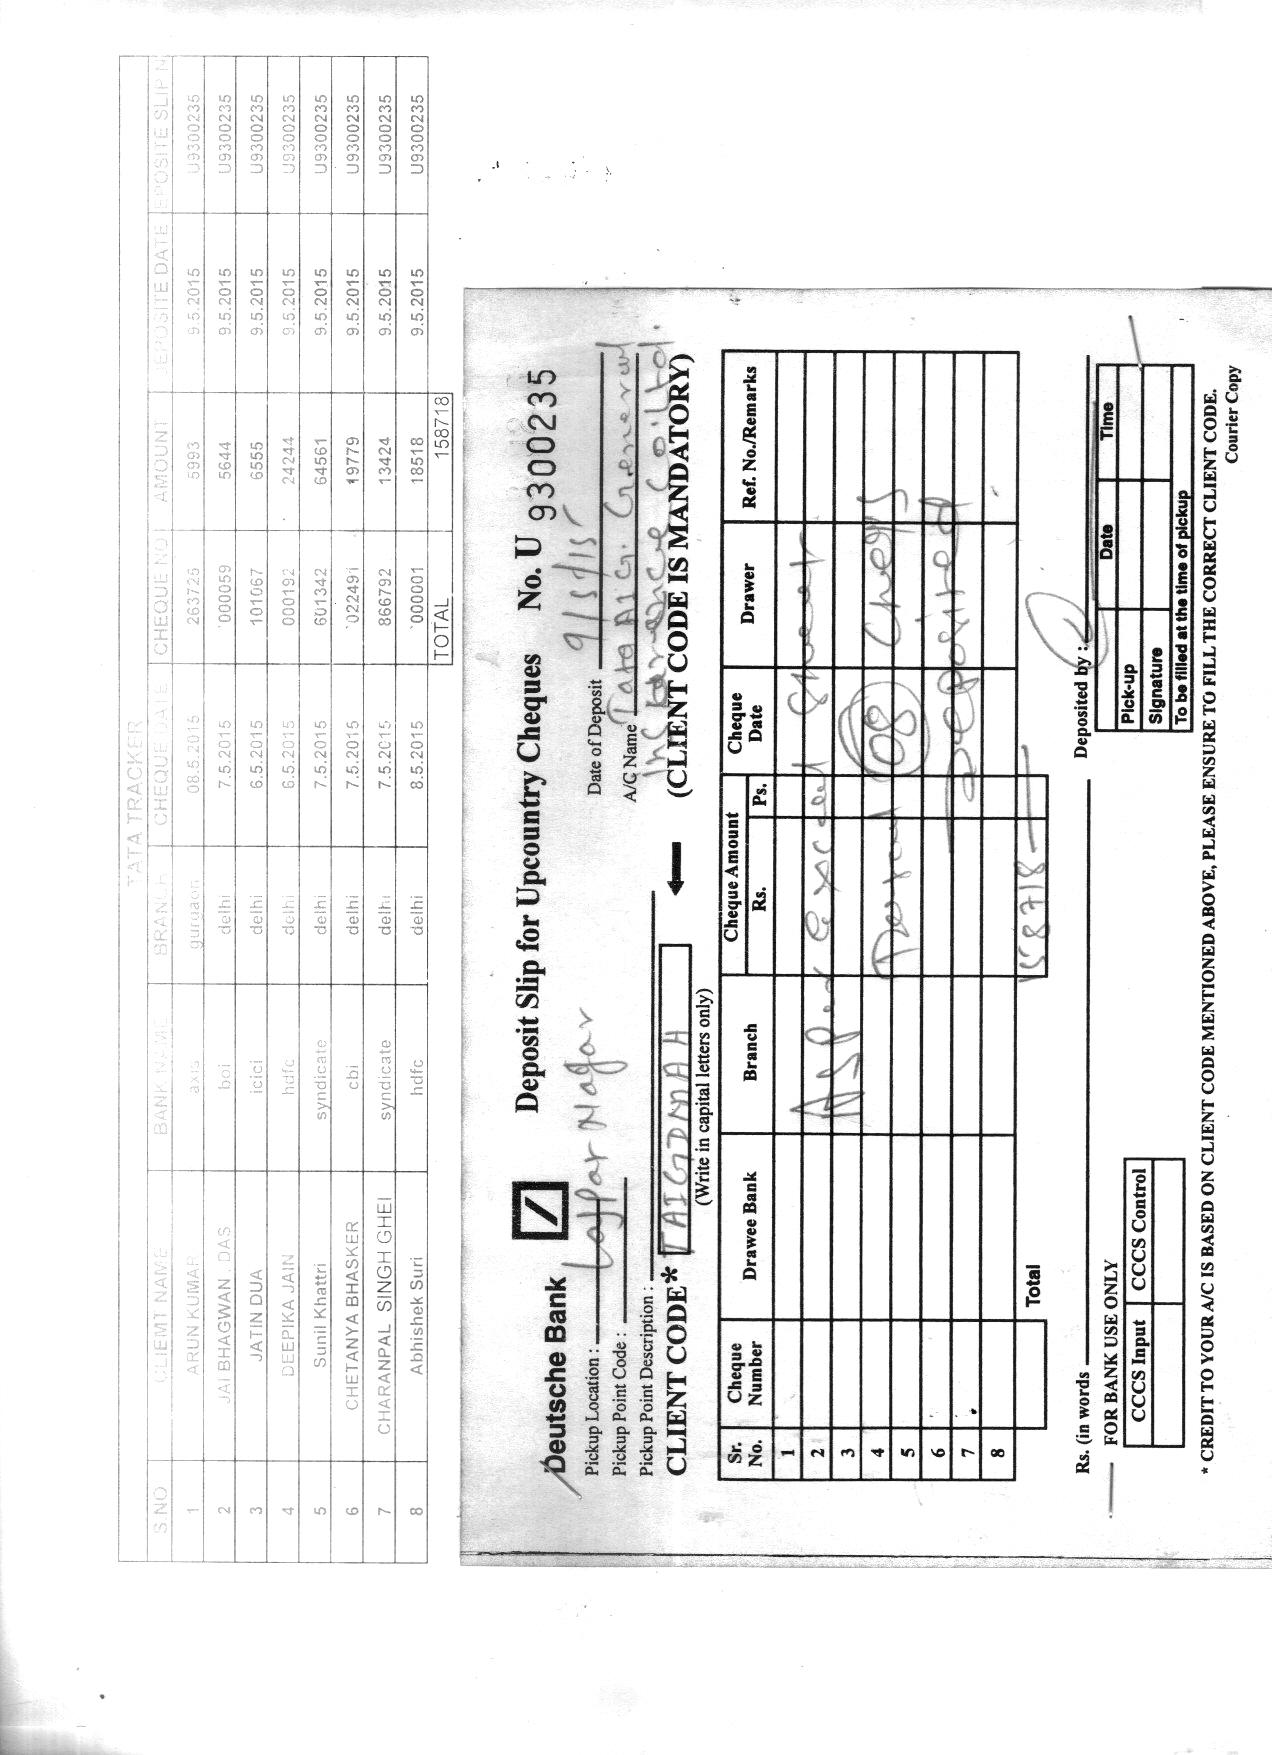 TATA TRACKER
S.NO CLIEMT NAME BANK NAME BRANCH CHEQUE DATE CHEQUE NO AMOUNT EPOSITE DATE EPOSITE SLIP N
1 ARUN KUMAR axis gurgaon 08.5.2015 263725 5993 9.5.2015 U9300235
2 JAI BHAGWAN . DAS boi delhi 7.5.2015 '000059 5644 9.5.2015 U9300235
3 JATIN DUA icici delhi 6.5.2015 101067 6555 9.5.2015 U9300235
4 DEEPIKA JAIN hdfc delhi 6.5.2015 000192 24244 9.5.2015 U9300235
5 Sunil Khattri syndicate delhi 7.5.2015 601342 64561 9.5.2015 U9300235
6 CHETANYA BHASKER cbi delhi 7.5.2015 '022491 19779 9.5.2015 U9300235
7 CHARANPAL SINGH GHEI syndicate delhi 7.5.2015 866792 13424 9.5.2015 U9300235
8 Abhishek Suri hdfc delhi 8.5.2015 '000001 18518 9.5.2015 U9300235
TOTAL 158718
Deutsche Bank Deposit Slip for Upcountry Cheques No. U 9300235
Pickup Location : Lajpat Nagar Date of Deposit 9/5/15
Pickup Point Code : A/C Name Tata AIG. General
Pickup Point Description : Insurance Co. Ltd.
CLIENT CODE* TAIGDMAH (CLIENT CODE IS MANDATORY)
(Write in capital letters only)
Sr. No. Cheque Number Drawee Bank Branch Cheque Amount Rs. Ps. Cheque Date Drawer Ref. No./Remarks
1
2 As per excel sheet
3
4 Total 08 Cheqs
5
6 Deposited
7
8
Total 158718
Rs. (in words Deposited by :
FOR BANK USE ONLY
CCCS Input CCCS Control
Date Time
Pick-up
Signature
To be filled at the time of pickup
* CREDIT TO YOUR A/C IS BASED ON CLIENT CODE MENTIONED ABOVE, PLEASE ENSURE TO FILL THE CORRECT CLIENT CODE.
Courier Copy